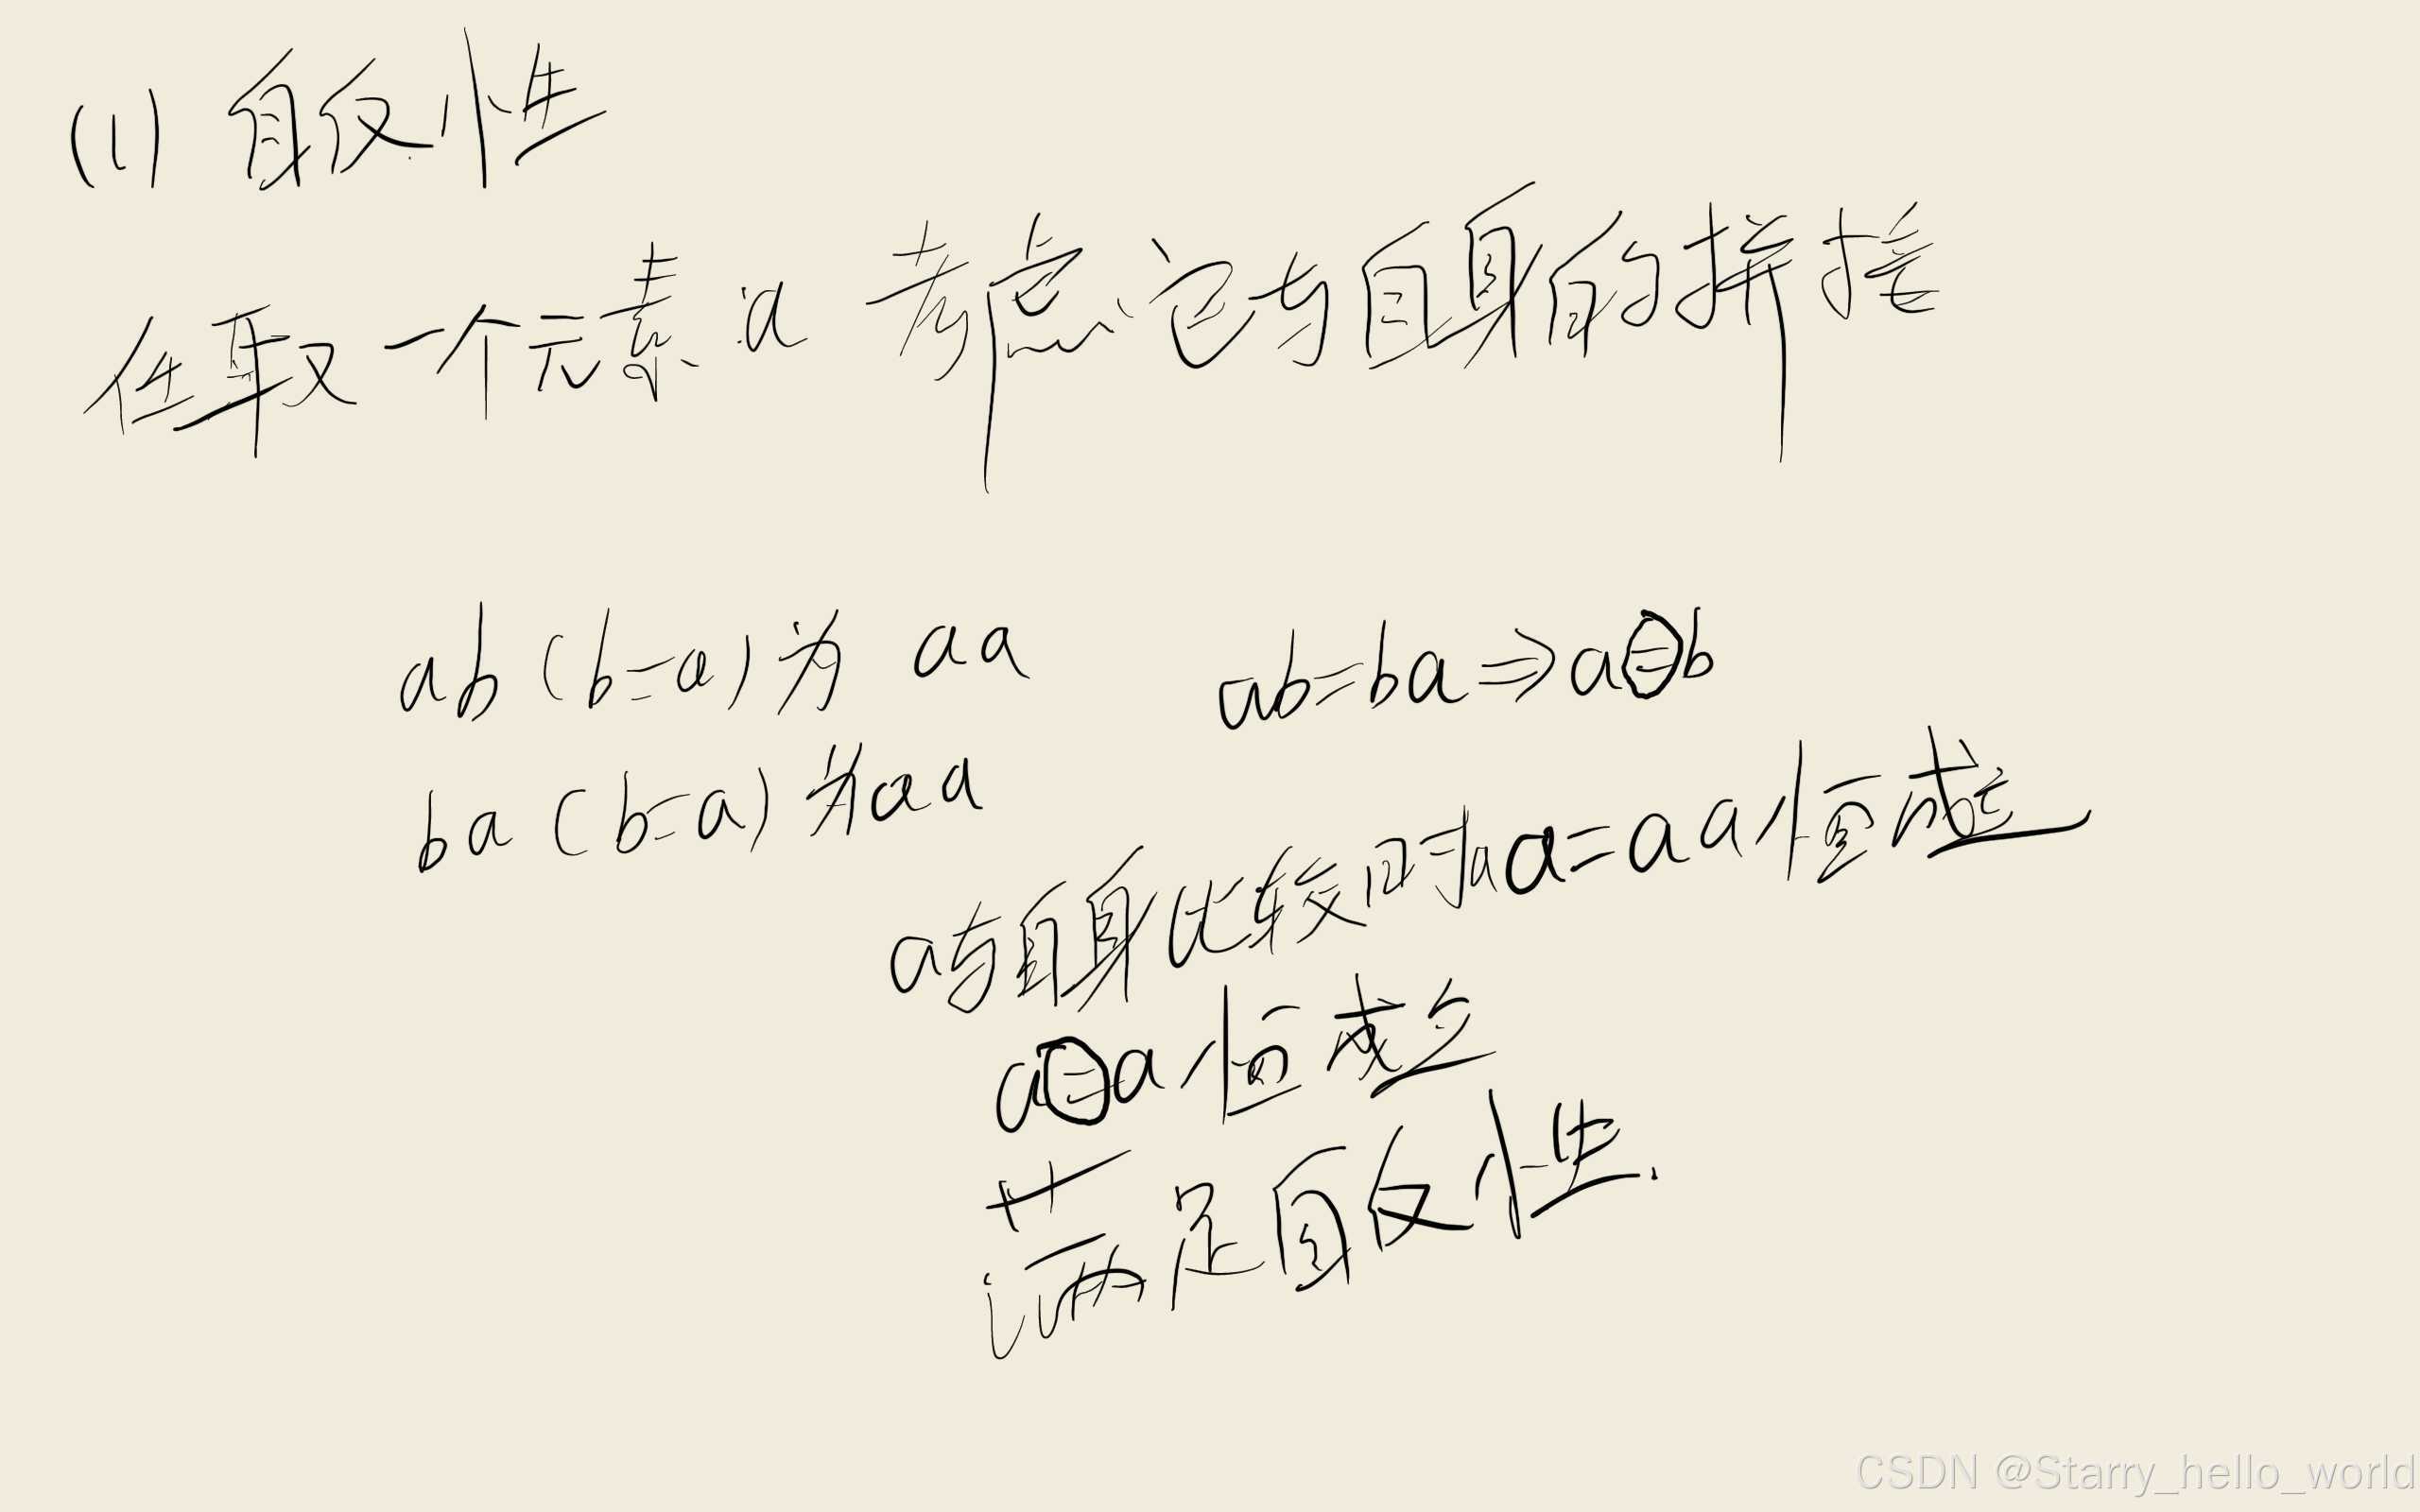 (1) 自反性
任取一个元素a 考虑它与自身的拼接
ab (b=a) 为 aa
ab=ba⇒a⊜b
ba (b=a) 为aa
a与自身比较时aa=aa恒成立
a⊜a恒成立
满足自反性.
CSDN @Starry_hello_world